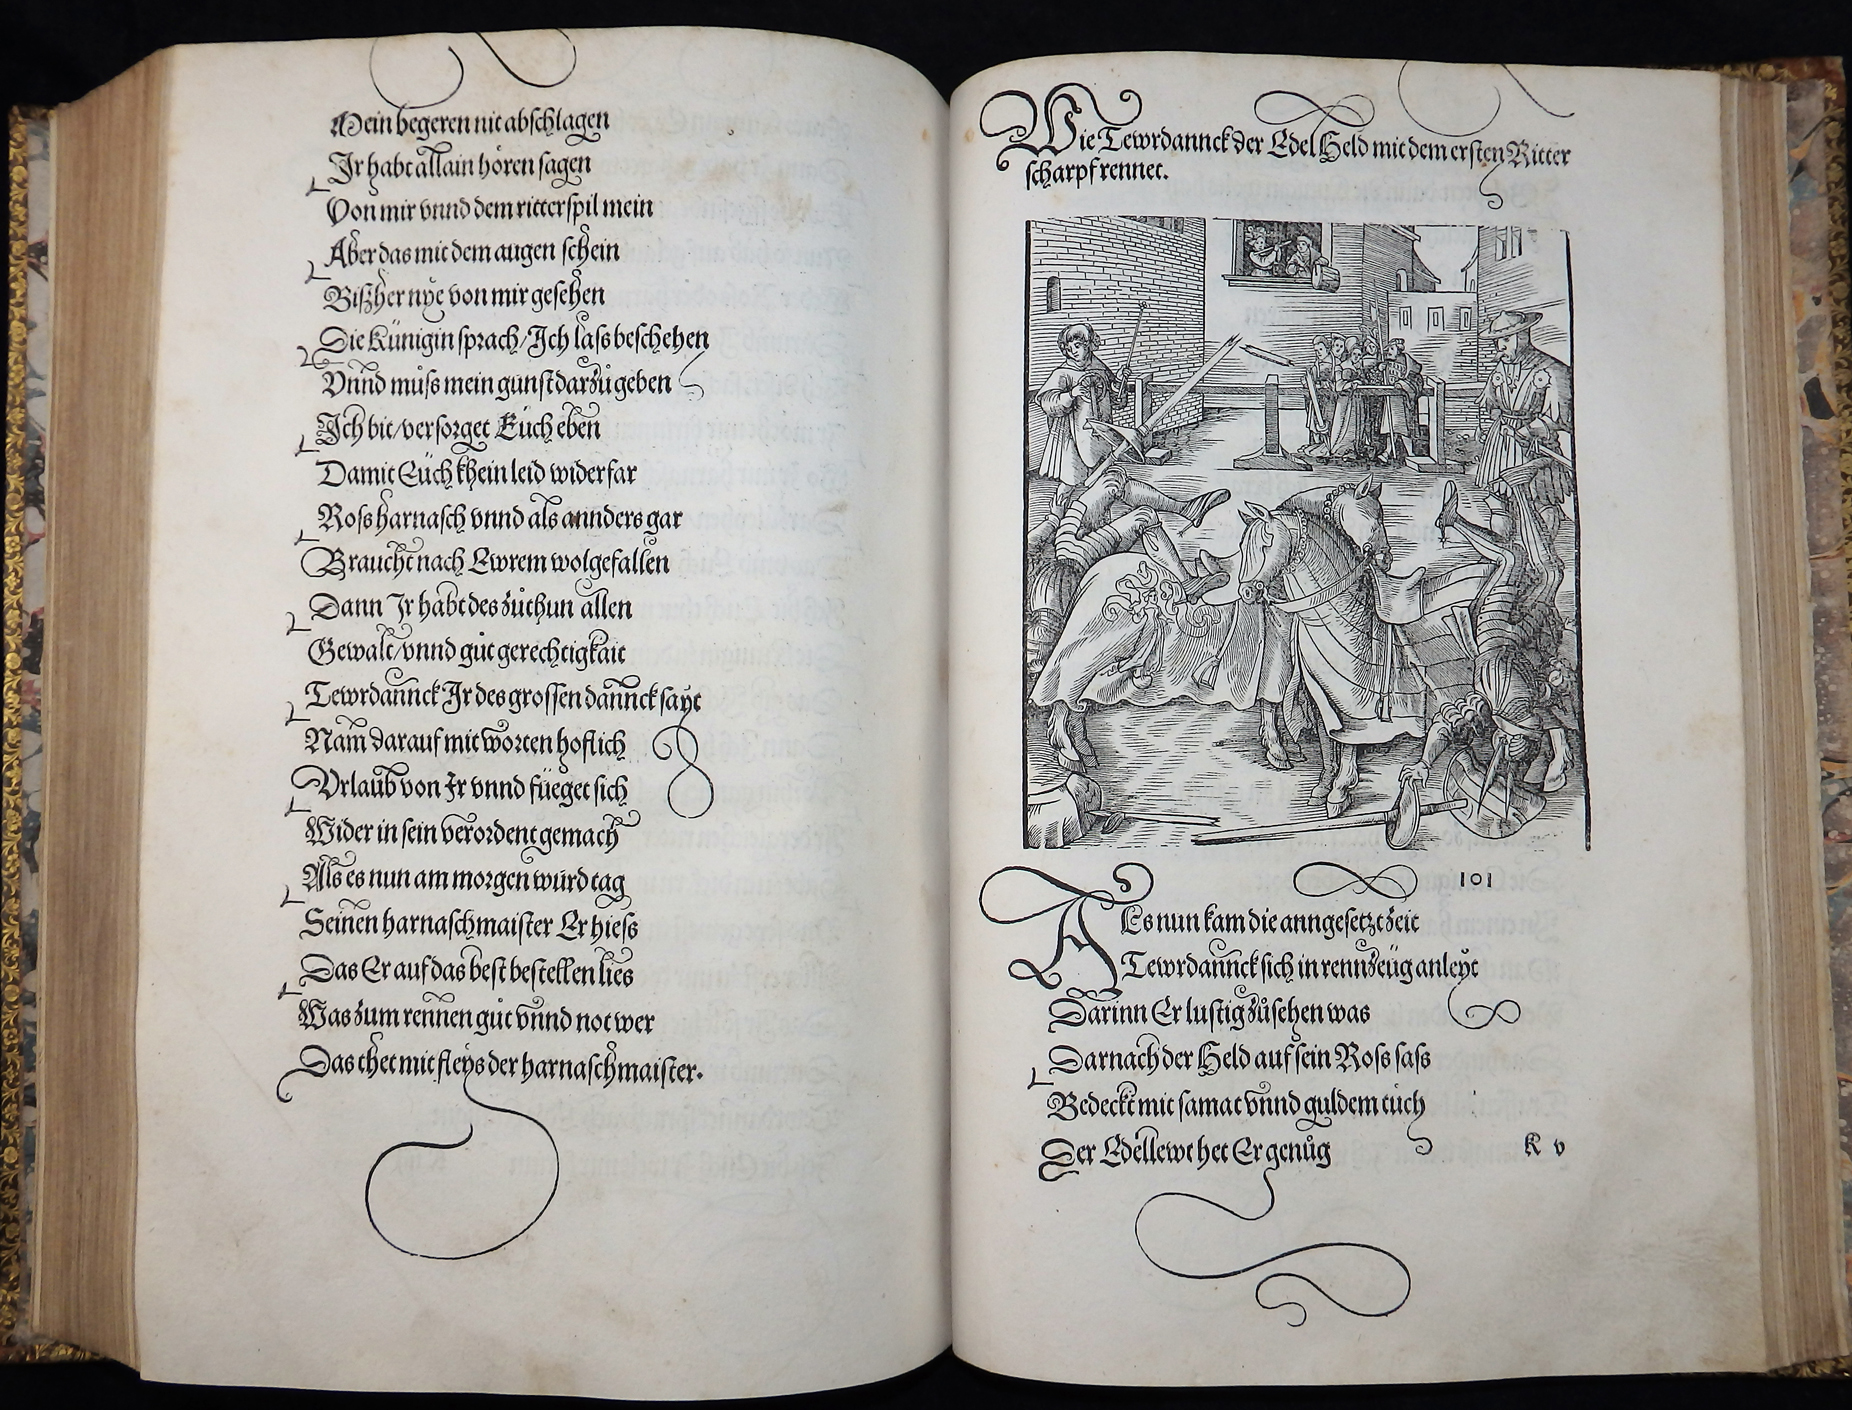 Mein begeren nit abschlagen
Ir habt allain hören sagen
Von mir vnnd dem ritterspil mein
Aber das mit dem augen schein
Bißher nye von mir gesehen
Die Künigin sprach/Ich lass beschehen
Vnnd muss mein gunst darzů geben
Ich bit/versorget Euch eben
Damit Euch khein leid widerfar
Ross harnasch vnnd als annders gar
Braucht nach Ewrem wolgefallen
Dann Ir habt des zůthun allen
Gewalt/vnnd gůt gerechtigkait
Tewrdannck Ir des grossen dannck sayt
Nam darauf mit worten hoflich
Vrlaub von Ir vnnd füeget sich
Wider in sein verordent gemach
Als es nun am morgen würd tag
Seinen harnaschmaister Er hiess
Das Er auf das best bestellen lies
Was zum rennen gůt vnnd not wer
Das thet mit fleys der harnaschmaister.
Wie Tewrdannck der Edel Held mit dem ersten Ritter
scharpf rennet.
101
Als nun kam die anngesetzt zeit
Tewrdannck sich in rennzeüg anleyt
Darinn Er lustig zůsehen was
Darnach der Held auf sein Ross sass
Bedeckt mit samat vnnd guldem tůch
Der Edellewt het Er genůg
K v